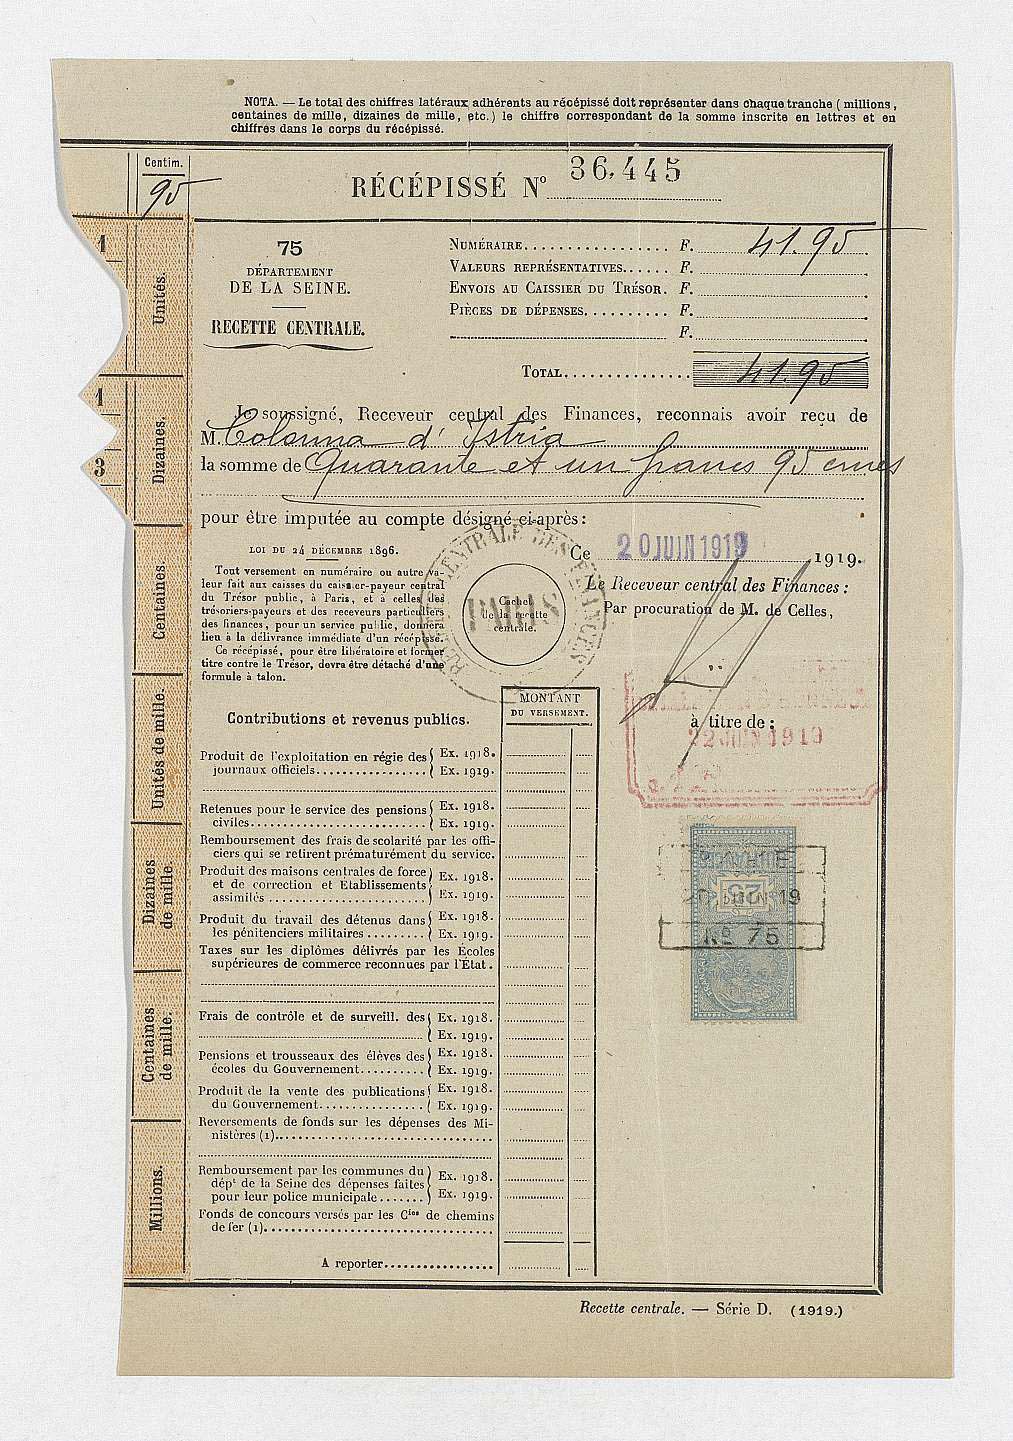 NOTA. — Le total des chiffres latéraux adhérents au récépissé doit représenter dans chaque tranche (millions,
centaines de mille, dizaines de mille, etc.) le chiffre correspondant de la somme inscrite en lettres et en
chiffres dans le corps du récépissé.
Centim.
95
RÉCÉPISSÉ N° 36,445
75
DÉPARTEMENT
DE LA SEINE.
RECETTE CENTRALE.
NUMÉRAIRE................. F. 41.95
VALEURS REPRÉSENTATIVES...... F.
ENVOIS AU CAISSIER DU TRÉSOR. F.
PIÈCES DE DÉPENSES.......... F.
F.
TOTAL............... 41.95
Je soussigné, Receveur central des Finances, reconnais avoir reçu de
M. Colonna d'Istria
la somme de Quarante et un francs 95 cmes
pour être imputée au compte désigné ci-après:
LOI DU 24 DÉCEMBRE 1896.
Tout versement en numéraire ou autre va-
leur fait aux caisses du caissier-payeur central
du Trésor public, à Paris, et à celles des
trésoriers-payeurs et des receveurs particuliers
des finances, pour un service public, donnera
lieu à la délivrance immédiate d'un récépissé.
Ce récépissé, pour être libératoire et former
titre contre le Trésor, devra être détaché d'une
formule à talon.
RECETTE CENTRALE DES FINANCES
PARIS
Cachet
de la recette
centrale.
Ce 20 JUIN 1919 1919.
Le Receveur central des Finances:
Par procuration de M. de Celles,
à titre de:
22 JUIN 1919
MONTANT
DU VERSEMENT.
Contributions et revenus publics.
Produit de l'exploitation en régie des { Ex. 1918.
journaux officiels................ { Ex. 1919.
Retenues pour le service des pensions { Ex. 1918.
civiles.......................... { Ex. 1919.
Remboursement des frais de scolarité par les offi-
ciers qui se retirent prématurément du service.
Produit des maisons centrales de force { Ex. 1918.
et de correction et Établissements
assimilés ...................... { Ex. 1919.
Produit du travail des détenus dans { Ex. 1918.
les pénitenciers militaires ......... { Ex. 1919.
Taxes sur les diplômes délivrés par les Écoles
supérieures de commerce reconnues par l'État.
Frais de contrôle et de surveill. des { Ex. 1918.
{ Ex. 1919.
Pensions et trousseaux des élèves des { Ex. 1918.
écoles du Gouvernement.......... { Ex. 1919.
Produit de la vente des publications { Ex. 1918.
du Gouvernement................ { Ex. 1919.
Reversements de fonds sur les dépenses des Mi-
nistères (1)..................................
Remboursement par les communes du } Ex. 1918.
dépt de la Seine des dépenses faites
pour leur police municipale....... } Ex. 1919.
Fonds de concours versés par les Cies de chemins
de fer (1)...................................
A reporter................
25
19
N° 75
1
Unités.
1
3
Dizaines.
Centaines.
Unités de mille.
Dizaines
de mille.
Centaines
de mille.
Millions.
Recette centrale. — Série D. (1919.)